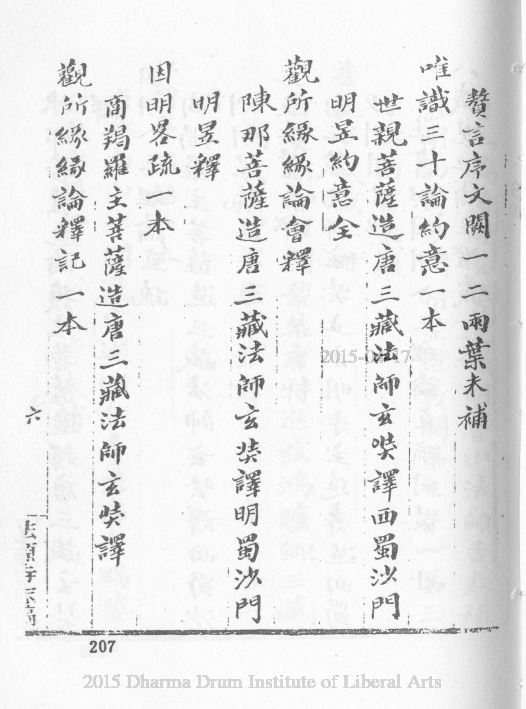 贅言序文闕一二兩葉未補
唯識三十論約意一本
世親菩薩造唐三藏法師玄奘譯西蜀沙門
明昱約意全
觀所緣緣論會釋
陳那菩薩造唐三藏法師玄奘譯明蜀沙門
明昱釋
因明畧疏一本
商羯羅主菩薩造唐三藏法師玄奘譯
觀所緣緣論釋記一本
六
207
2015 Dharma Drum Institute of Liberal Arts